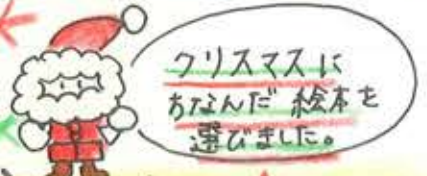 クリスマスに
ちなんだ 絵本を
選びました。